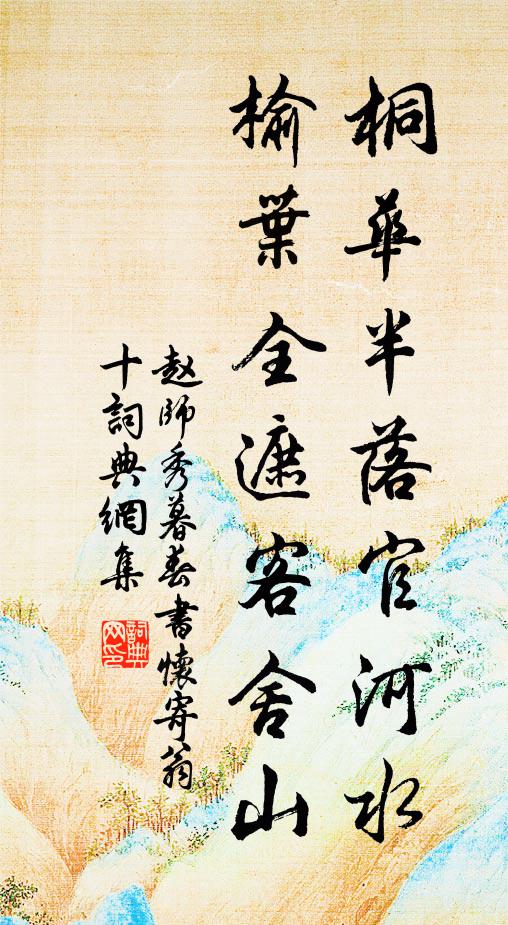 桐華半落官河水
榆葉全遮客舍山
赵師秀暮春書懷寄翁
十詞典網集
詞典网印